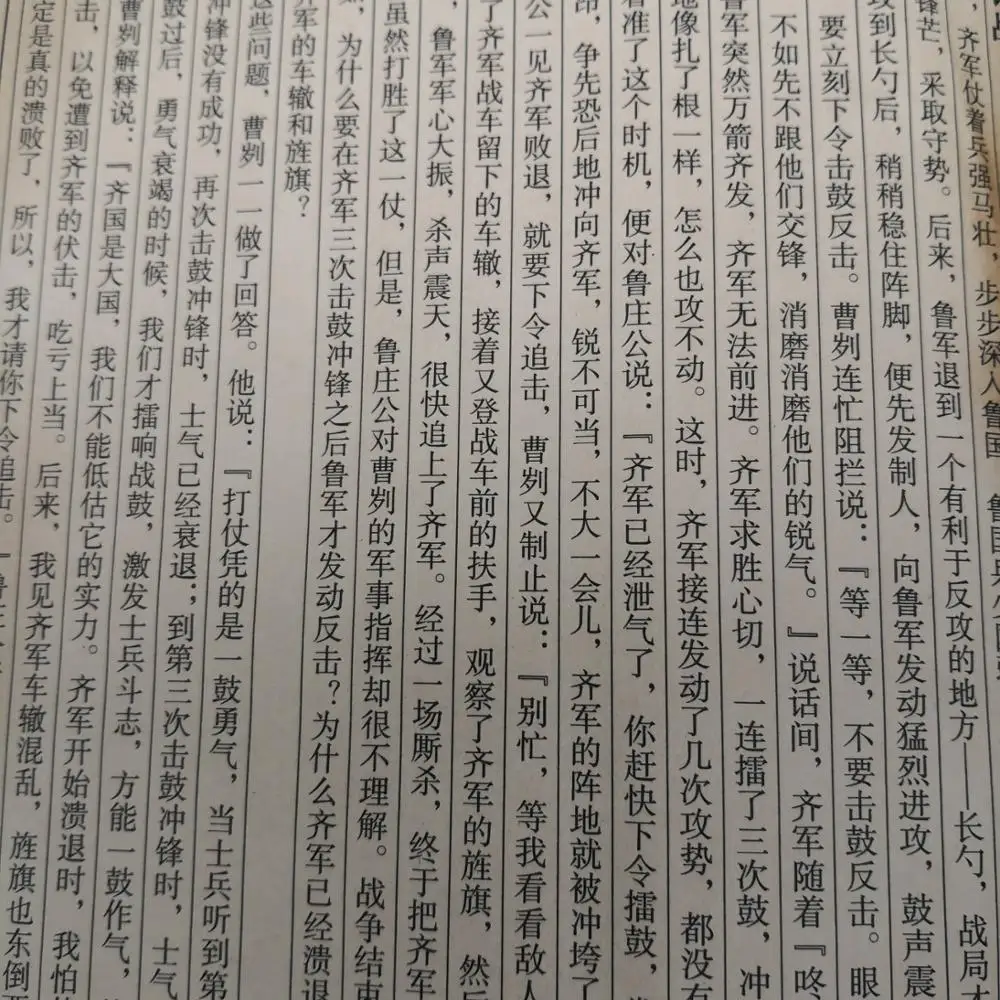 ，齐军仗着兵强马壮，步步深入鲁国
锋芒，采取守势。后来，鲁军退到一个有利于反攻的地方——长勺，战局才
攻到长勺后，稍稍稳住阵脚，便先发制人，向鲁军发动猛烈进攻，鼓声震
要立刻下令击鼓反击。曹刿连忙阻拦说：『等一等，不要击鼓反击。眼
不如先不跟他们交锋，消磨消磨他们的锐气。』说话间，齐军随着『咚
鲁军突然万箭齐发，齐军无法前进。齐军求胜心切，一连擂了三次鼓，冲
地像扎了根一样，怎么也攻不动。这时，齐军接连发动了几次攻势，都没有
看准了这个时机，便对鲁庄公说：『齐军已经泄气了，你赶快下令擂鼓，
昂，争先恐后地冲向齐军，锐不可当，不大一会儿，齐军的阵地就被冲垮了
公一见齐军败退，就要下令追击，曹刿又制止说：『别忙，等我看看敌人
了齐军战车留下的车辙，接着又登战车前的扶手，观察了齐军的旌旗，然后
，鲁军军心大振，杀声震天，很快追上了齐军。经过一场厮杀，终于把齐军
虽然打胜了这一仗，但是，鲁庄公对曹刿的军事指挥却很不理解。战争结束
，为什么要在齐军三次击鼓冲锋之后鲁军才发动反击？为什么齐军已经溃退
齐军的车辙和旌旗？
这些问题，曹刿一一做了回答。他说：『打仗凭的是一鼓勇气，当士兵听到第
冲锋没有成功，再次击鼓冲锋时，士气已经衰退；到第三次击鼓冲锋时，士气
鼓过后，勇气衰竭的时候，我们才擂响战鼓，激发士兵斗志，方能一鼓作气，
曹刿解释说：『齐国是大国，我们不能低估它的实力。齐军开始溃退时，我怕
击，以免遭到齐军的伏击，吃亏上当。后来，我见齐军车辙混乱，旌旗也东倒
定是真的溃败了，所以，我才请你下令追击。』